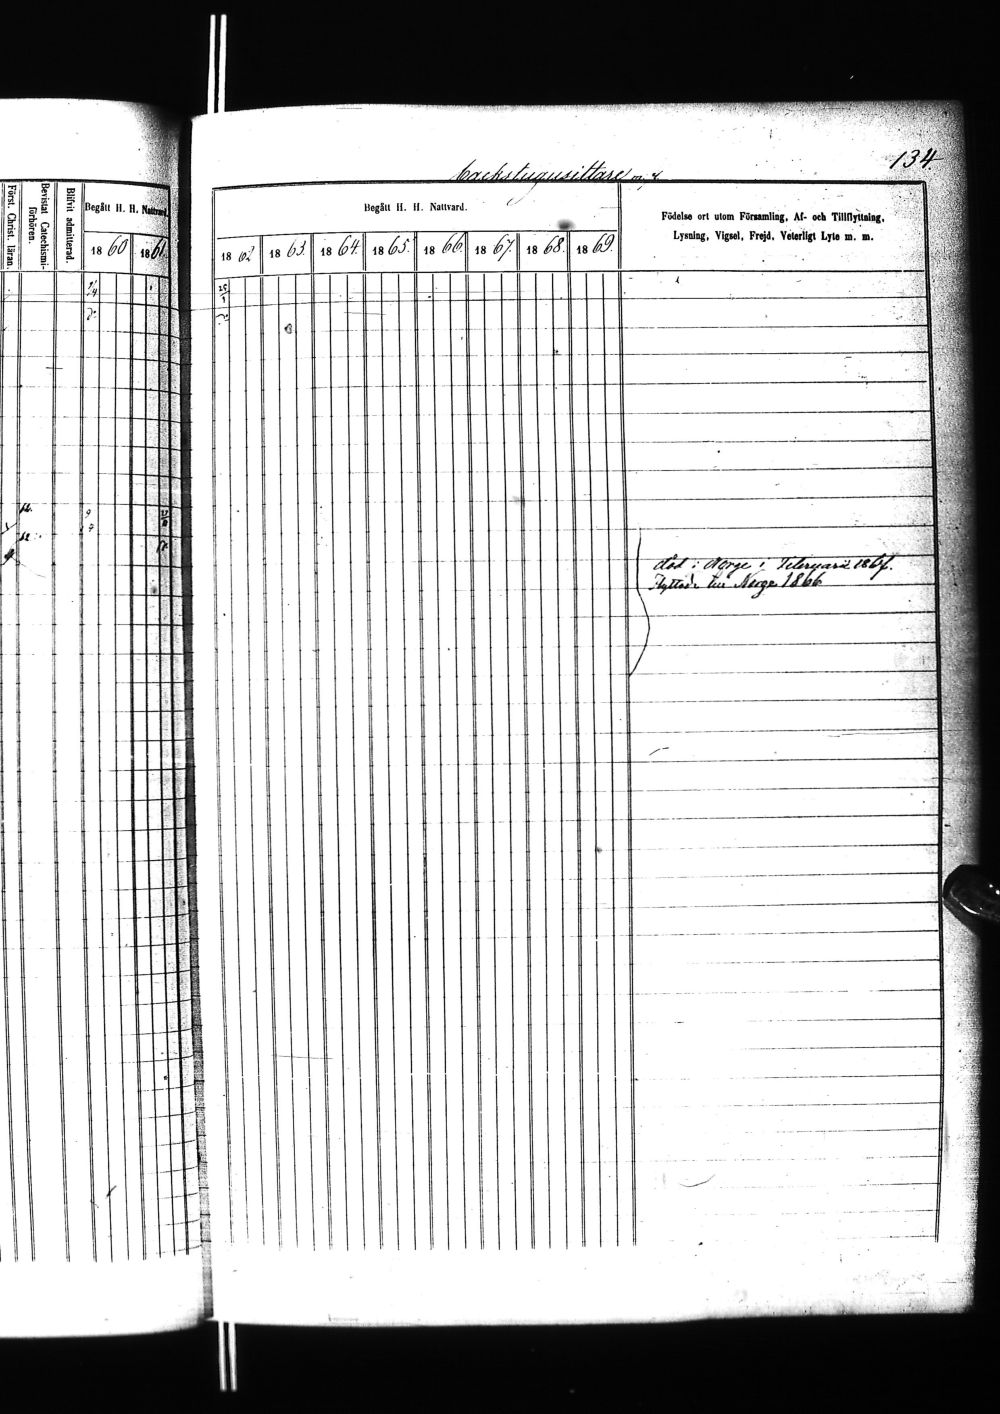 134.
Backstugusittare m. fl.
Först. Christ. läran.
Bevistat Catechismi-
förhören.
Blifvit admitterad.
Begått H. H. Nattvard.
1860 1861.
Begått H. H. Nattvard.
1862 1863. 1864. 1865. 1866. 1867. 1868. 1869.
Födelse ort utom Församling, Af- och Tillflyttning,
Lysning, Vigsel, Frejd, Veterligt Lyte m. m.
25/1
död i Norge i Februarii 1867.
Flyttade till Norge 1866